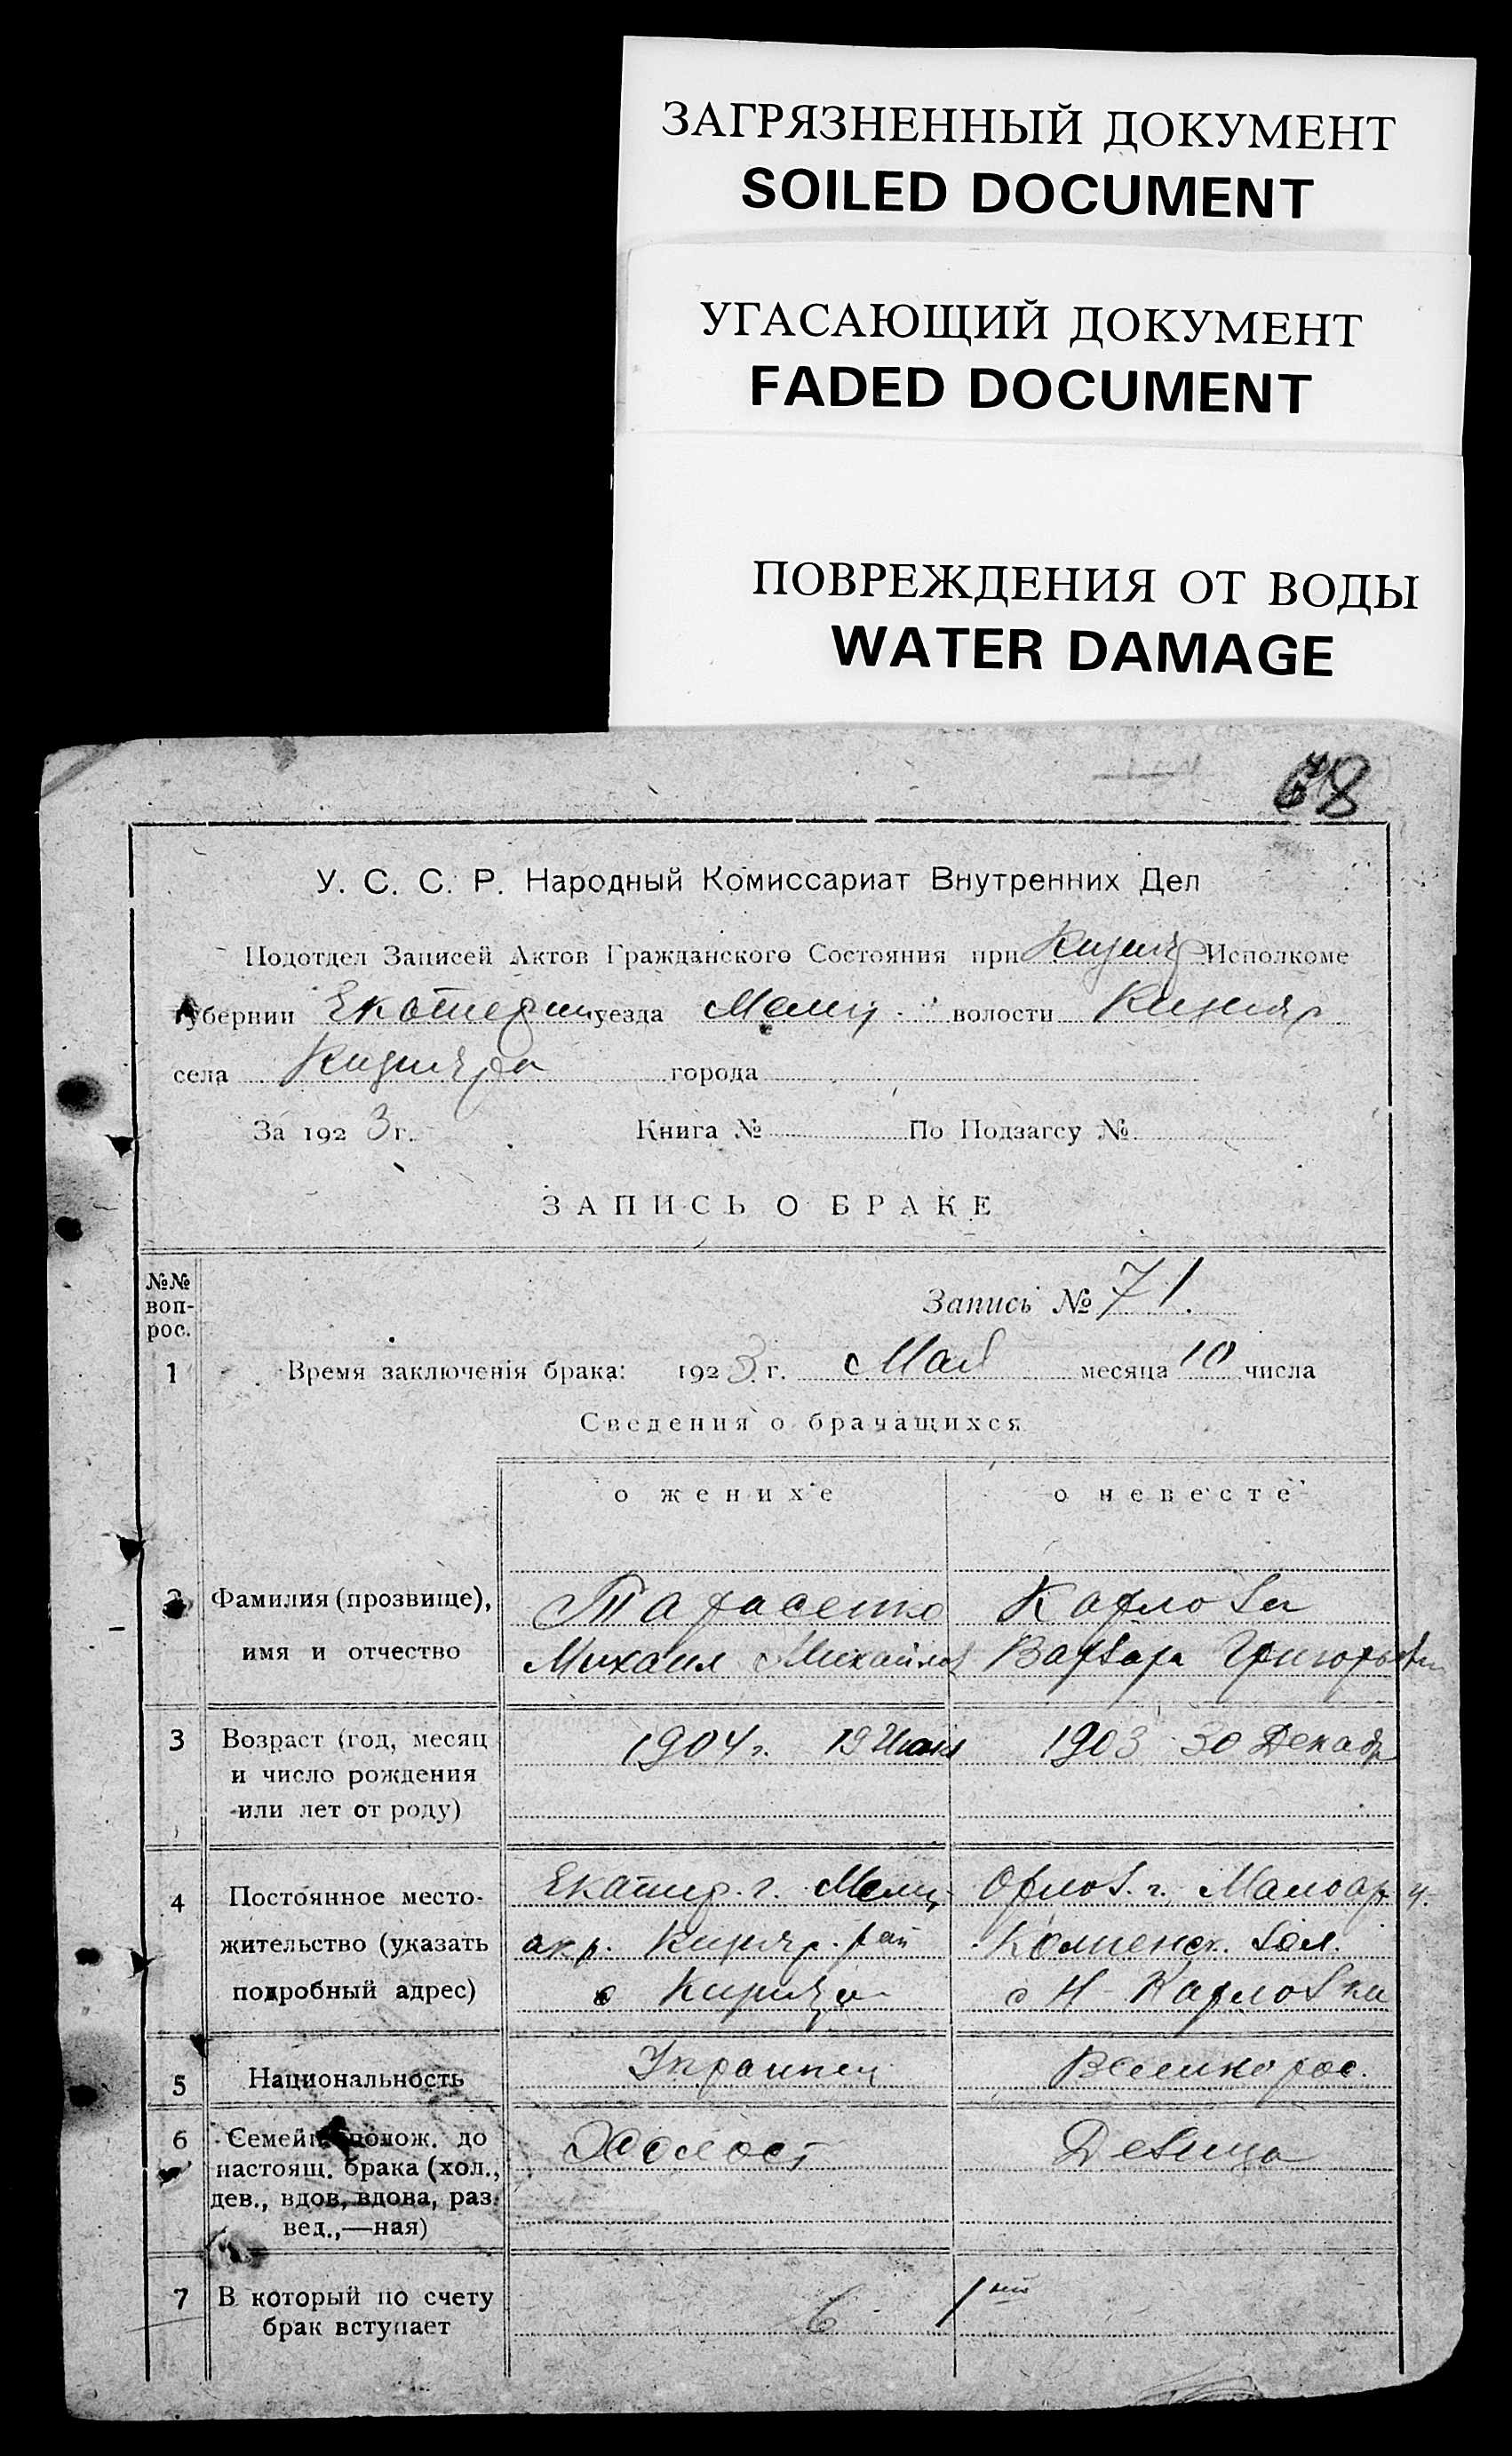 ЗАГРЯЗНЕННЫЙ ДОКУМЕНТ
SOILED DOCUMENT
УГАСАЮЩИЙ ДОКУМЕНТ
FADED DOCUMENT
ПОВРЕЖДЕНИЯ ОТ ВОДЫ
WATER DAMAGE
68
У. С. С. Р. Народный Комиссариат Внутренних Дел
Подотдел Записей Актов Гражданского Состояния при Кизияр Исполкоме
Губернии Екатерин уезда Мелит. волости Кизияр
села Кизияра города
За 1923 г. Книга № По Подзагсу №
ЗАПИСЬ О БРАКЕ
№№ воп-рос.
Запись № 71.
1 Время заключенія брака: 1923 г. Май месяца 10 числа
Сведения о брачащихся
о женихе о невесте
2 Фамилия (прозвище), Тарасенко Карлова
имя и отчество Михаил Михайлов Варвара Григорьевн
3 Возраст (год, месяц 1904 г. 19 1903 30 Декабр
и число рождения
или лет от роду)
4 Постоянное место- Екатер. г. Мелит Орлов. г. Малоар. у.
жительство (указать окр. Кизияр. рай вол.
подробный адрес) с Кизияр с Н-Карловка
5 Национальность Украинец Великорос.
6 Семейн. полож. до Холост Девица
настоящ. брака (хол.,
дев., вдов, вдова, раз-
вед.,—ная)
7 В который по счету 6 1ый
брак вступает